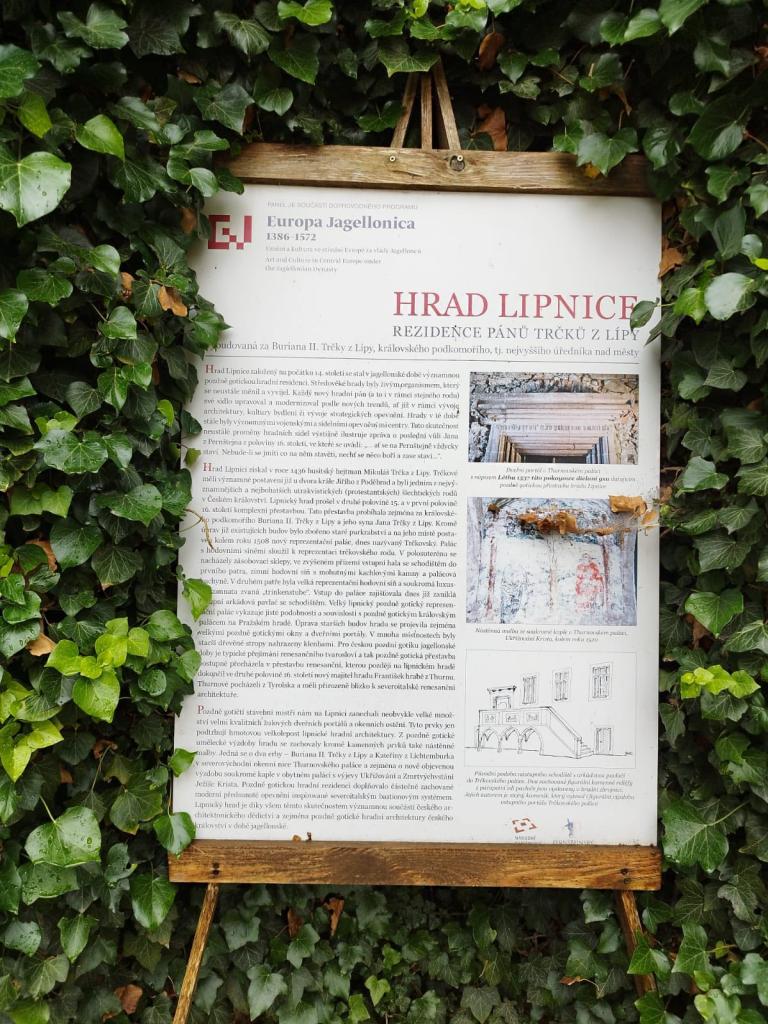 PANEL JE SOUČÁSTÍ DOPROVODNÉHO PROGRAMU
Europa Jagellonica
1386–1572
Umění a kultura ve střední Evropě za vlády Jagellonců
Art and Culture in Central Europe under
the Jagiellonian Dynasty
HRAD LIPNICE
REZIDENCE PÁNŮ TRČKŮ Z LÍPY
budovaná za Buriana II. Trčky z Lípy, královského podkomořího, tj. nejvyššího úředníka nad městy
Hrad Lipnice založený na počátku 14. století se stal v jagellonské době významnou
pozdně gotickou hradní residencí. Středověké hrady byly živým organismem, který
se neustále měnil a vyvíjel. Každý nový hradní pán (a to i v rámci stejného rodu)
své sídlo upravoval a modernizoval podle nových trendů, ať již v rámci vývoje
architektury, kultury bydlení či vývoje strategických opevnění. Hrady v té době
stále byly významnými vojenskými a sídelními opevněnými centry. Tuto skutečnost
neustálé proměny hradních sídel výstižně ilustruje zpráva o poslední vůli Jana
z Pernštejna z poloviny 16. století, ve které se uvádí: „... ať se na Pernštejně vždycky
staví. Nebude-li se jmíti co na něm stavěti, nechť se něco boří a zase staví...“.
Hrad Lipnici získal v roce 1436 husitský hejtman Mikuláš Trčka z Lípy. Trčkové
měli významné postavení již u dvora krále Jiřího z Poděbrad a byli jedním z nejvý-
znamnějších a nejbohatších utrakvistických (protestantských) šlechtických rodů
v Českém království. Lipnický hrad prošel v druhé polovině 15. a v první polovině
16. století komplexní přestavbou. Tato přestavba probíhala zejména za královské-
ho podkomořího Buriana II. Trčky z Lípy a jeho syna Jana Trčky z Lípy. Kromě
úprav již existujících budov bylo zbořeno staré purkrabství a na jeho místě posta-
ven kolem roku 1508 nový reprezentační palác, dnes nazývaný Trčkovský. Palác
s hodovními síněmi sloužil k reprezentaci trčkovského rodu. V polosuterénu se
nacházely zásobovací sklepy, ve zvýšeném přízemí vstupní hala se schodištěm do
prvního patra, zimní hodovní síň s mohutnými kachlovými kamny a palácová
kuchyně. V druhém patře byla velká reprezentační hodovní síň a soukromá luxus-
komnata zvaná „trinkenstube“. Vstup do paláce zajišťovala dnes již zaniklá
arkádová pavlač se schodištěm. Velký lipnický pozdně gotický represen-
palác vykazuje jisté podobnosti a souvislosti s pozdně gotickým královským
palácem na Pražském hradě. Úprava starších budov hradu se projevila zejména
velkými pozdně gotickými okny a dveřními portály. V mnoha místnostech byly
starší dřevěné stropy nahrazeny klenbami. Pro českou pozdní gotiku jagellonské
doby je typické přijímání renesančního tvarosloví a tak pozdně gotická přestavba
postupně přecházela v přestavbu renesanční, kterou později na lipnickém hradě
dokončil ve druhé polovině 16. století nový majitel hradu František hrabě z Thurnu.
Thurnové pocházeli z Tyrolska a měli přirozeně blízko k severoitalské renesanční
architektuře.
Pozdně gotičtí stavební mistři nám na Lipnici zanechali neobvykle velké množ-
ství velmi kvalitních žulových dveřních portálů a okenních ostění. Tyto prvky jen
podtrhují hmotovou velkolepost lipnické hradní architektury. Z pozdně gotické
umělecké výzdoby hradu se zachovaly kromě kamenných prvků také nástěnné
malby. Jedná se o dva erby – Buriana II. Trčky z Lípy a Kateřiny z Lichtenburka
v severovýchodním okenní nice Thurnovského paláce a zejména o nově objevenou
výzdobu soukromé kaple v obytném paláci s výjevy Ukřižování a Zmrtvýchvstání
Ježíše Krista. Pozdně gotickou hradní residenci doplňovalo částečně zachované
moderní předsunuté opevnění inspirované severoitalským bastionovým systémem.
Lipnický hrad je díky všem těmto skutečnostem významnou součástí českého ar-
chitektonického dědictví a zejména pozdně gotické hradní architektury českého
království v době jagellonské.
Dveřní portál v Thurnovském paláci
s nápisem Létha 1537 tito pokogowe dielani gsu datujícím
pozdně gotickou přestavbu hradu Lipnice
Nástěnná malba ze soukromé kaple v Thurnovském paláci,
Ukřižování Krista, kolem roku 1520
Původní podoba nástupního schodiště s arkádovou pavlačí
do Trčkovského paláce.